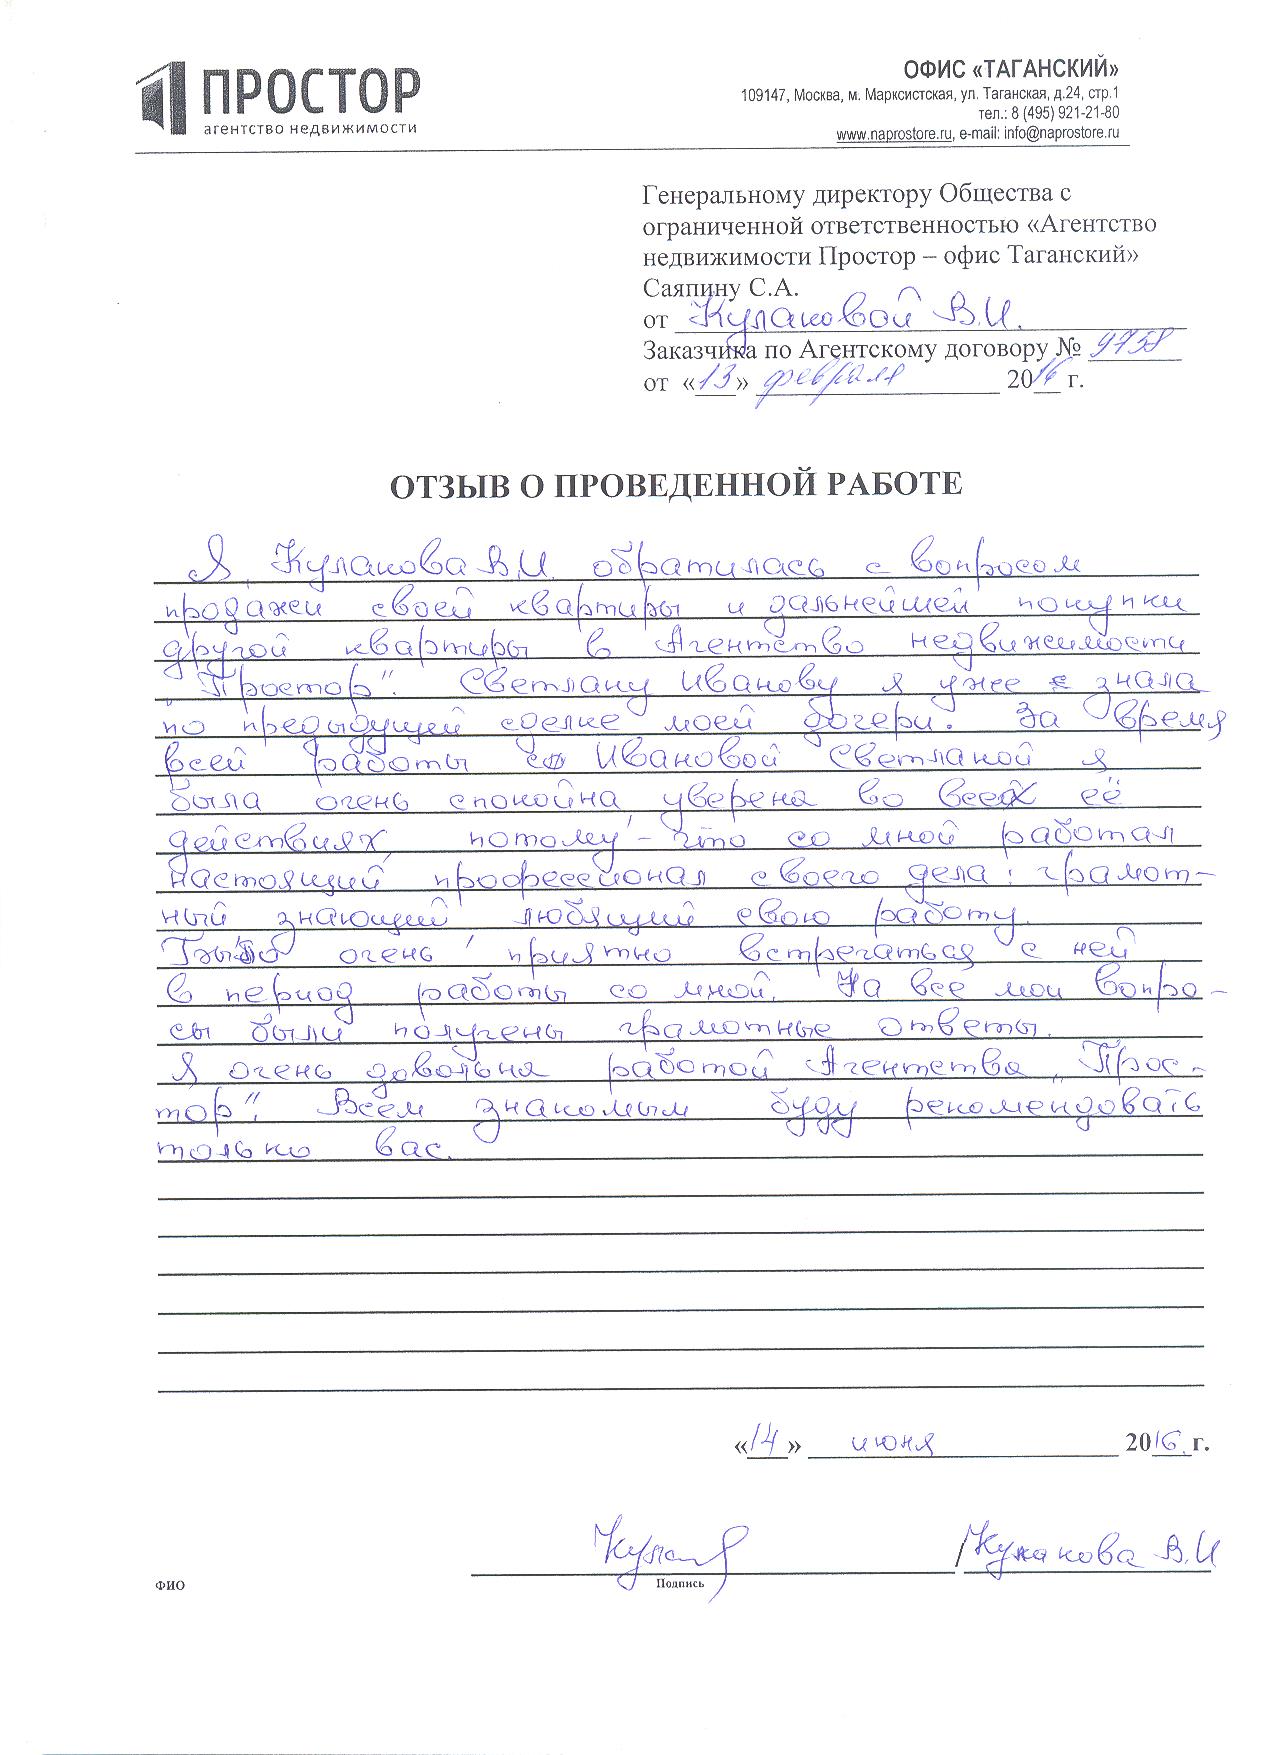 ПРОСТОР
агентство недвижимости
ОФИС «ТАГАНСКИЙ»
109147, Москва, м. Марксистская, ул. Таганская, д.24, стр.1
тел.: 8 (495) 921-21-80
www.naprostore.ru, e-mail: info@naprostore.ru
Генеральному директору Общества с
ограниченной ответственностью «Агентство
недвижимости Простор – офис Таганский»
Саяпину С.А.
от Кулаковой В.И.
Заказчика по Агентскому договору № 9758
от «13» февраля 2016 г.
ОТЗЫВ О ПРОВЕДЕННОЙ РАБОТЕ
Я, Кулакова В.И. обратилась с вопросом
продажей своей квартиры и дальнейшей покупки
другой квартиры в Агентство недвижимости
„Простор". Светлану Иванову я уже знала
по предыдущей сделке моей дочери. За время
всей работы со Ивановой Светланой я
была очень спокойна, уверена во всех её
действиях, потому-что со мной работал
настоящий профессионал своего дела: грамот-
ный, знающий, любящий свою работу.
Было очень приятно встречаться с ней
в период работы со мной. На все мои вопро-
сы были получены грамотные ответы.
Я очень довольна работой Агентства „Прос-
тор". Всем знакомым буду рекомендовать
только вас.
«14» июня 2016 г.
/Кулакова В.И
ФИО
Подпись